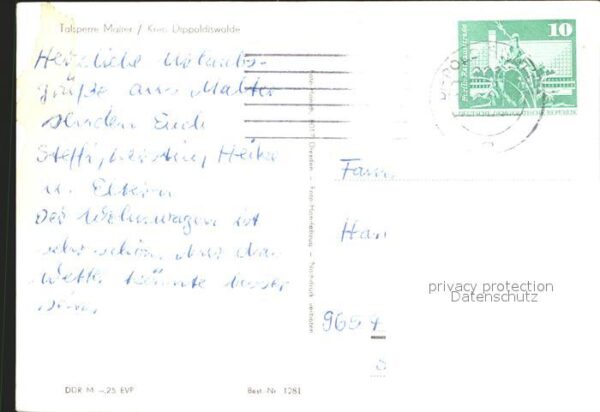 Talsperre Malter / Kreis Dippoldiswalde
10
DEUTSCHE DEMOKRATISCHE REPUBLIK
Herzliche Urlaubs-
grüße aus Malter
senden Euch
Steffi, Heike
u. Eltern.
Der Wohnwagen ist
sehr schön, nur das
Wetter könnte besser
sein.
Fam.
Han
9654
privacy protection
Datenschutz
Dresden – Nachdruck verboten
DDR M –,25 EVP
Best. Nr. 1281